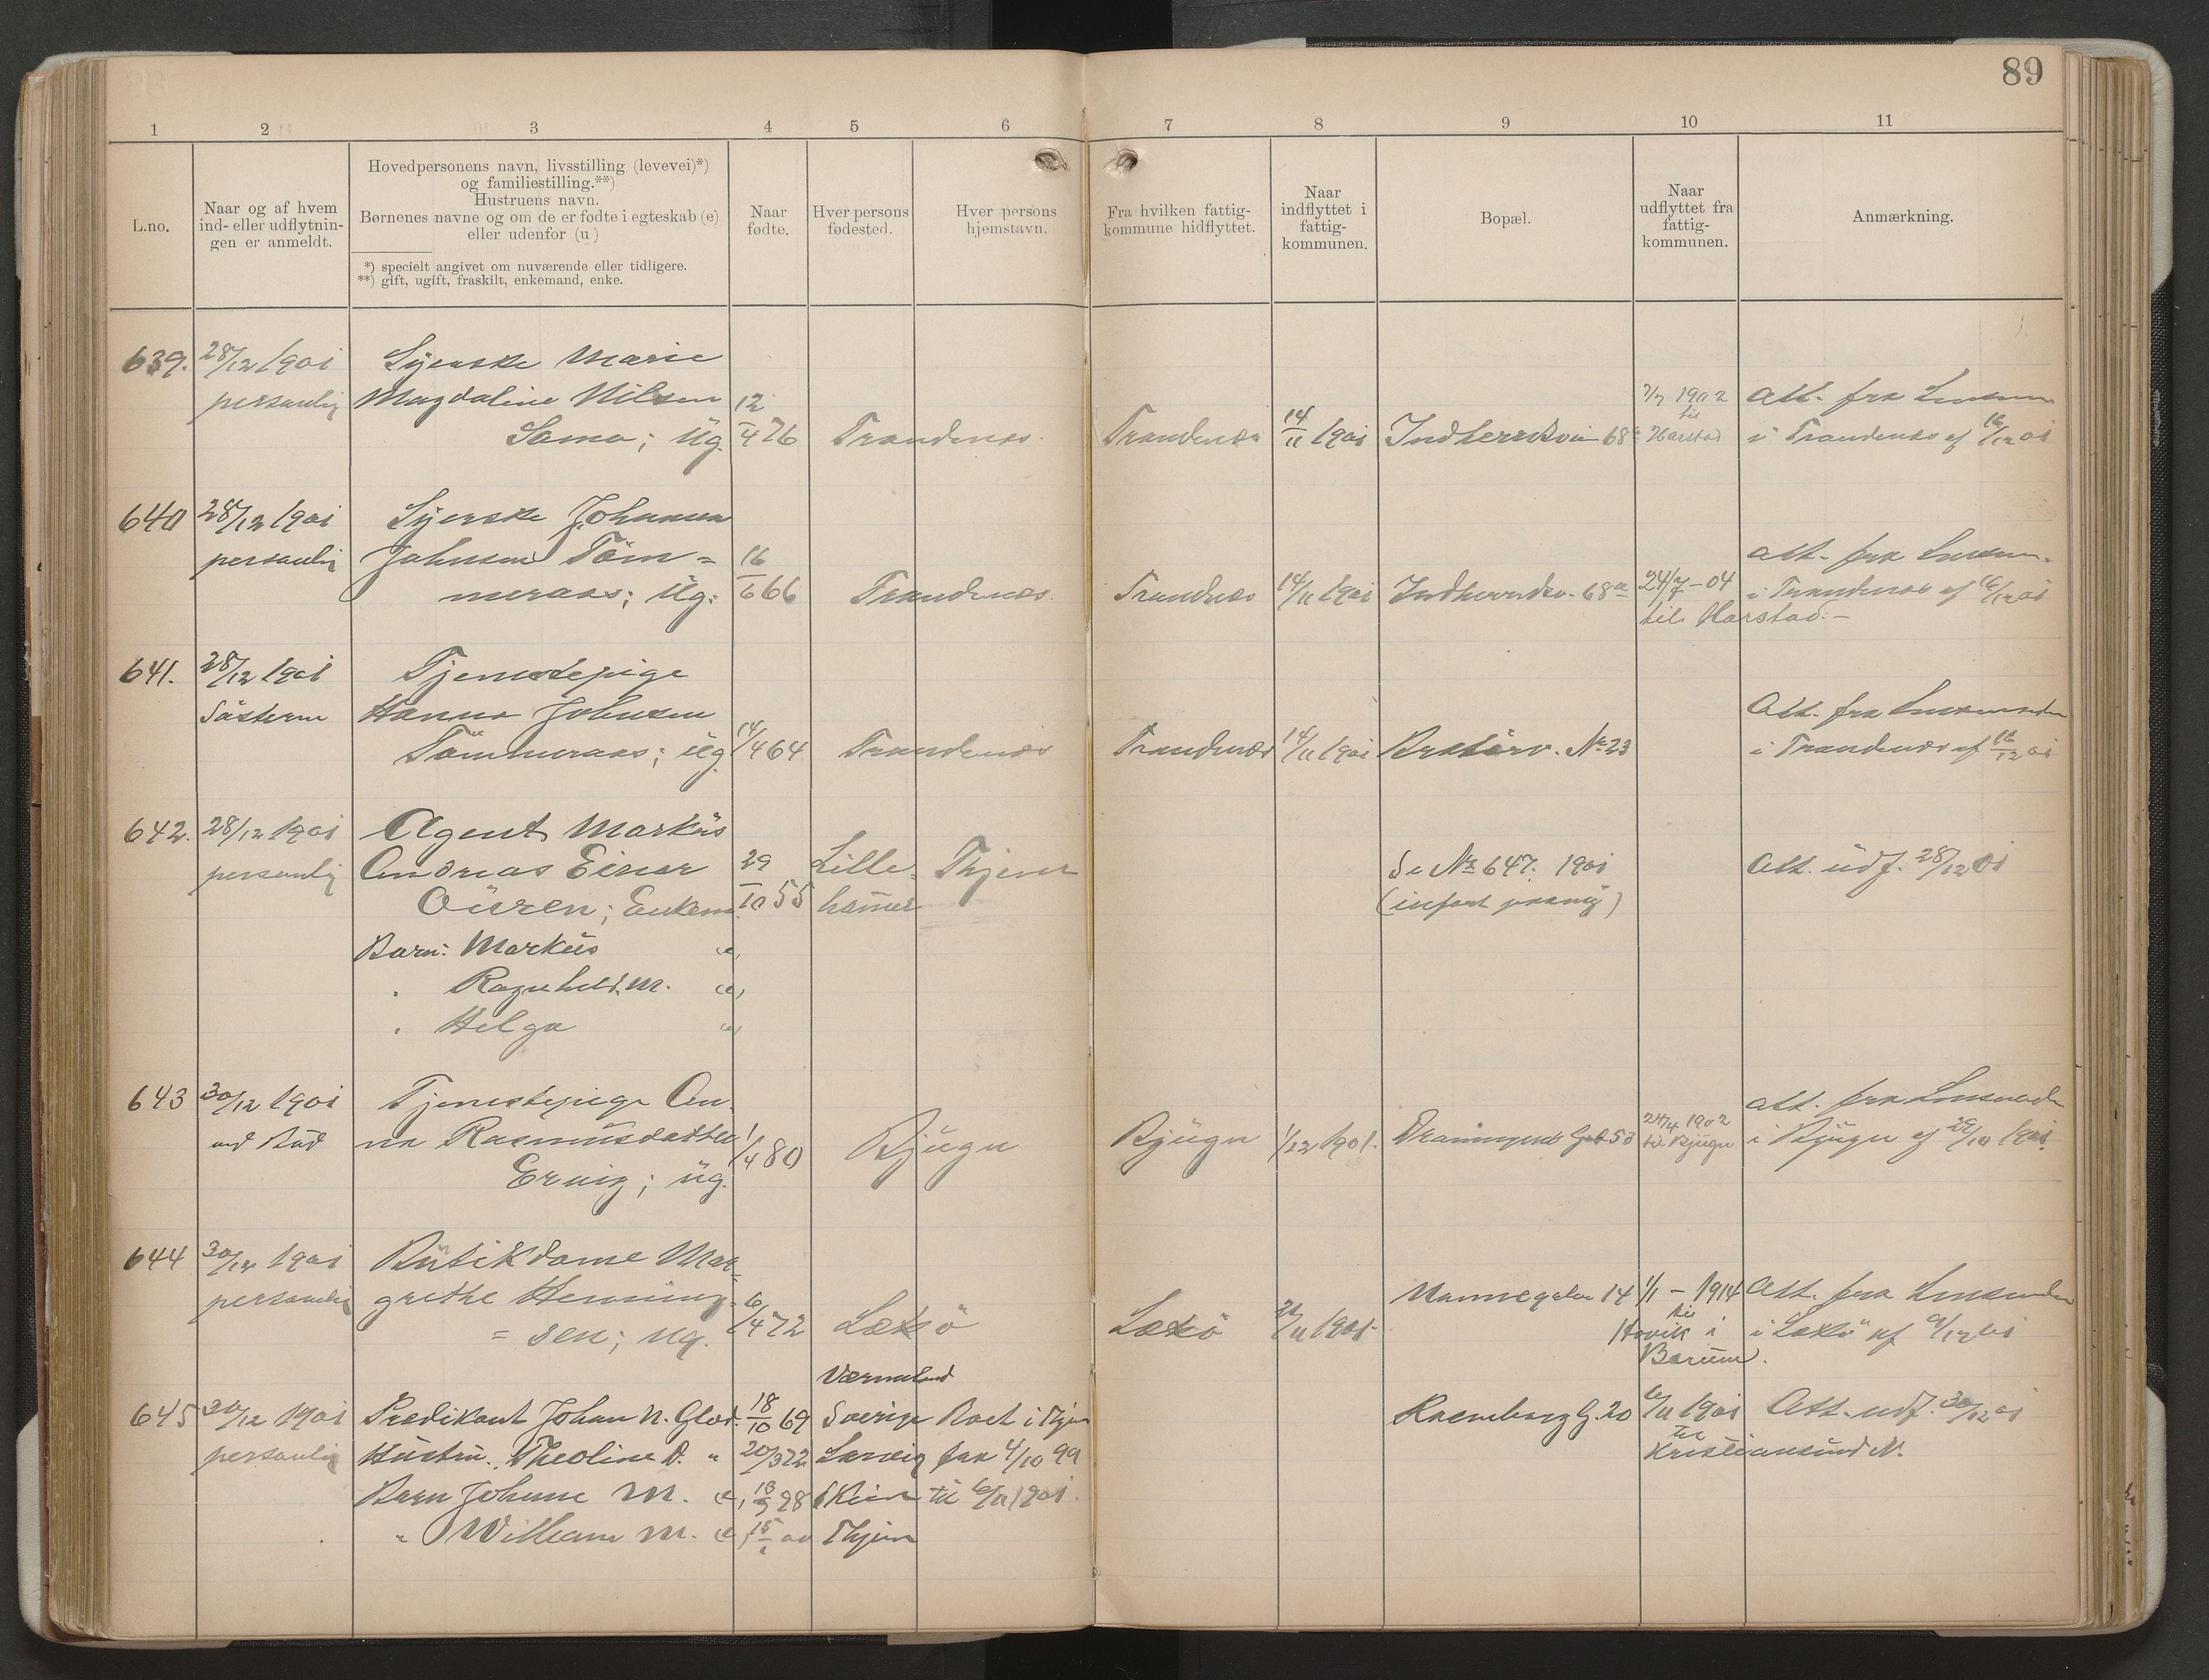 89
1 2 3 4 5 6 7 8 9 10 11
L.no.
Naar og af hvem
ind- eller udflytnin-
gen er anmeldt.
Hovedpersonens navn, livsstilling (levevei)*)
og familiestilling.**)
Hustruens navn.
Børnenes navne og om de er fødte i egteskab (e)
eller udenfor (u)
*) specielt angivet om nuværende eller tidligere.
**) gift, ugift, fraskilt, enkemand, enke.
Naar
fødte.
Hver persons
fødested.
Hver persons
hjemstavn.
Fra hvilken fattig-
kommune hidflyttet.
Naar
indflyttet i
fattig-
kommunen.
Bopæl.
Naar
udflyttet fra
fattig-
kommunen.
Anmærkning.
639. 28/12 1901 Syerske Marie
personlig Magdaline Nilsen 12 7/7 1902 Att. fra
Sama; ug. /4 76 Trandenæs. Trandenæs 14/11 1901 68 til Harstad i Trandenæs af 16/12 01
640 28/12 1901 Syerske
personlig Johnsen Töm= 16 Att. fra
meraas; ug. /6 66 Trandenæs. Trandenæs 14/11 1901 68a 24/7-04 i Trandenæs af 16/12 01
til Harstad.-
641. 28/12 1901 Tjenestepige
Søsteren Hanna Johnsen Att. fra
Tömmeraas; ug. 14/4 64 Trandenæs Trandenæs 14/11 1901 Bratörv. No 23 i Trandenæs af 16/12 01
642. 28/12 1901 Agent Markus
personlig Andreas Einar 29 Lille- Thjem Se No 647. 1901 Att. udf. 28/12 01
Ouren; Enkem. /10 55 hamer
Barn: Markus e,
" Ragnhild M. e,
" Helga e,
643 30/12 1901 Tjenestepige An- Att. fra
ved Bud na Rasmusdatter 1/4 80 Bjugn Bjugn 1/12 1901. 53 24/4 1902 til Bjugn i Bjugn af
Ervig; ug.
644 30/12 1901 Butikdame Mar-
personlig grethe Henning- 6 Munkegaten 14 1/1 - 1914 Att. fra
= sen; ug. /4 72 Lexö Lexö 1901 til Høvik i i Lexö af 9/12 01
Bærum.
Værmland
645 30/12 1901 Predikant Johan N. Glad. 18/10 69 Sverige Boet i Thjem 20 6/11 1901 Att. udf. 30/12 01
personlig Hustru. Theoline D. " 20/3 72 Larvig fra 4/10 99 til Kristiansund N.
Barn Johune M. e, 98 Skien til 6/11 1901.
" William M. e, Thjem